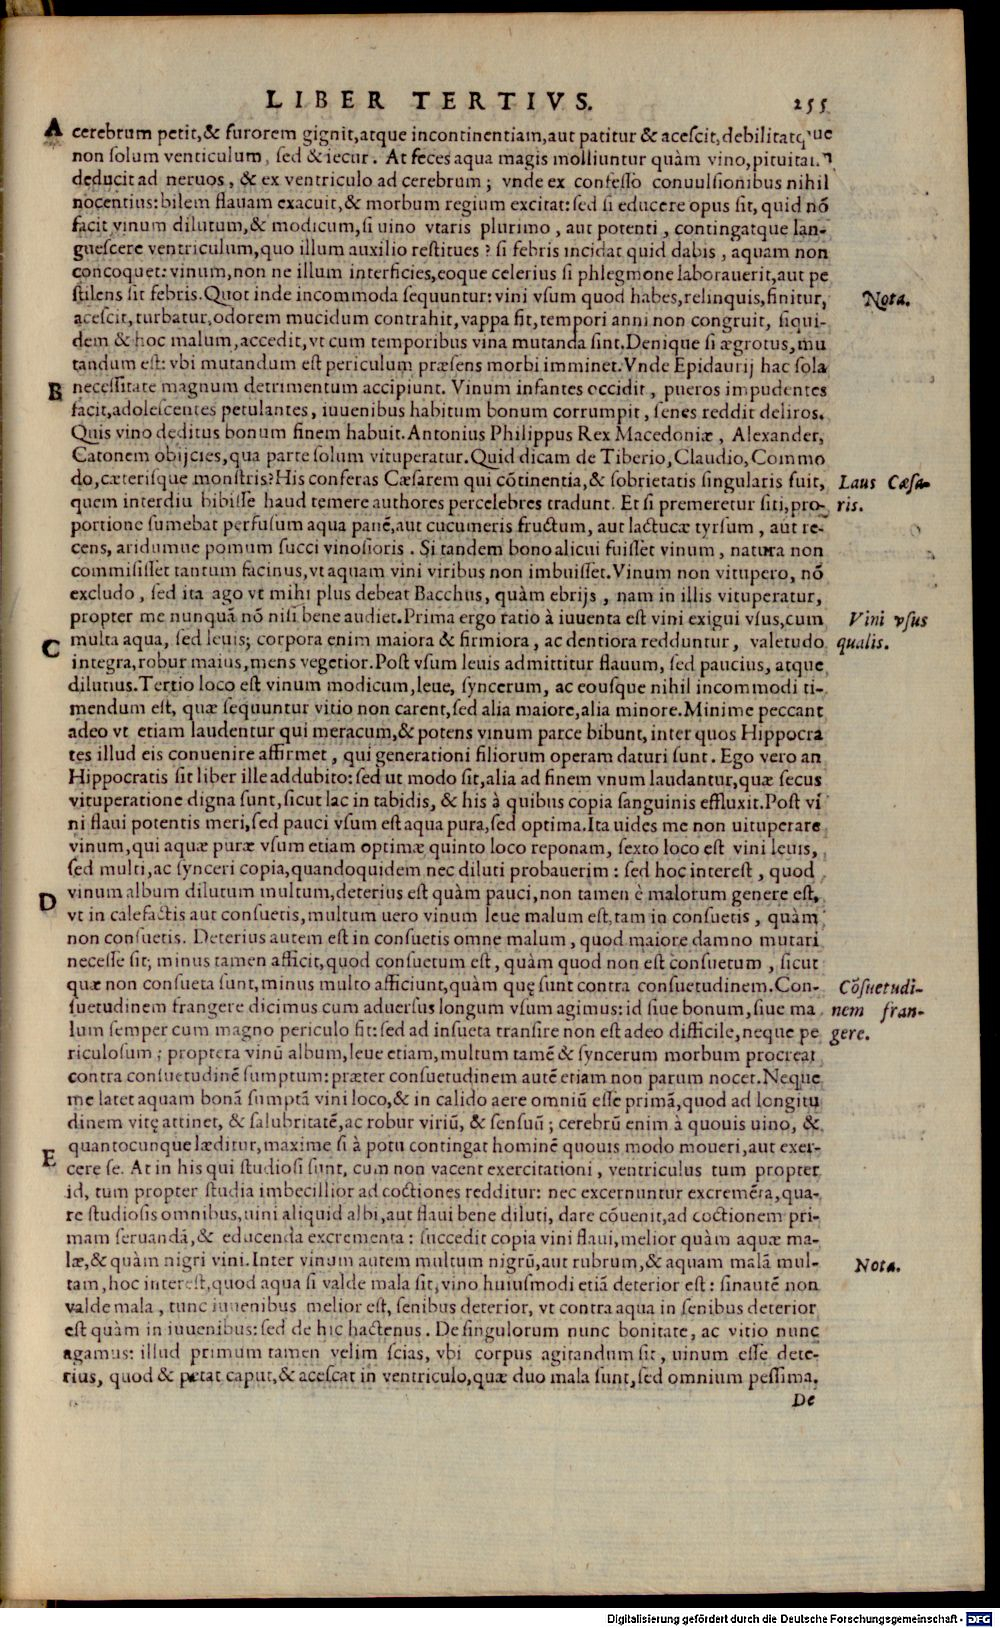 LIBER TERTIVS. 255
A cerebrum petit,& furorem gignit,atque incontinentiam,aut patitur & acescit,debilitatque
non ſolum ventriculum, ſed & iecur. At feces aqua magis molliuntur quàm vino,pituitam
deducit ad neruos, & ex ventriculo ad cerebrum; vnde ex confeſſo conuulſionibus nihil
nocentius: bilem flauam exacuit,& morbum regium excitat: ſed ſi educere opus ſit, quid nō
facit vinum dilutum,& modicum,ſi uino vtaris plurimo, aut potenti, contingatque lan-
gueſcere ventriculum,quo illum auxilio reſtitues? ſi febris incidat quid dabis, aquam non
concoquet: vinum,non ne illum interficies,eoque celerius ſi phlegmone laborauerit,aut pe
ſtilens ſit febris.Quot inde incommoda ſequuntur: vini vſum quod habes,relinquis,finitur,
Nota.
aceſcit,turbatur,odorem mucidum contrahit,vappa fit,tempori anni non congruit, ſiqui-
dem & hoc malum,accedit,vt cum temporibus vina mutanda ſint.Denique ſi ægrotus,mu
tandum eſt: vbi mutandum eſt periculum præſens morbi imminet.Vnde Epidaurij hac ſola
B neceſſitate magnum detrimentum accipiunt. Vinum infantes occidit, pueros impudentes
facit,adoleſcentes petulantes, iuuenibus habitum bonum corrumpit, ſenes reddit deliros.
Quis vino deditus bonum finem habuit.Antonius Philippus Rex Macedoniæ, Alexander,
Catonem obijcies,qua parte ſolum vituperatur.Quid dicam de Tiberio,Claudio,Commo
do,cæteriſque monſtris?His conferas Cæſarem qui cōtinentia,& ſobrietatis ſingularis fuit,
Laus Cæſa-
quem interdiu bibiſſe haud temere authores percelebres tradunt. Et ſi premeretur ſiti,pro-
ris.
portione ſumebat perfuſum aqua panē,aut cucumeris fructum, aut lactucæ tyrſum, aut re-
cens, aridumue pomum ſucci vinoſioris. Si tandem bono alicui fuiſſet vinum, natura non
commiſiſſet tantum facinus,vt aquam vini viribus non imbuiſſet.Vinum non vitupero, nō
excludo, ſed ita ago vt mihi plus debeat Bacchus, quàm ebrijs, nam in illis vituperatur,
propter me nunquā nō niſi bene audiet.Prima ergo ratio à iuuenta eſt vini exigui vſus,cum
Vini vſus
C multa aqua, ſed leuis; corpora enim maiora & firmiora, ac dentiora redduntur, valetudo
qualis.
integra,robur maius,mens vegetior.Poſt vſum leuis admittitur flauum, ſed paucius, atque
dilutius.Tertio loco eſt vinum modicum,leue, ſyncerum, ac eouſque nihil incommodi ti-
mendum eſt, quæ ſequuntur vitio non carent,ſed alia maiore,alia minore.Minime peccant
adeo vt etiam laudentur qui meracum,& potens vinum parce bibunt, inter quos Hippocra
tes illud eis conuenire affirmet, qui generationi filiorum operam daturi ſunt. Ego vero an
Hippocratis ſit liber ille addubito: ſed ut modo ſit,alia ad finem vnum laudantur,quæ ſecus
vituperatione digna ſunt,ſicut lac in tabidis, & his à quibus copia ſanguinis effluxit.Poſt vi
ni flaui potentis meri,ſed pauci vſum eſt aqua pura,ſed optima.Ita uides me non uituperare
vinum,qui aquæ puræ vſum etiam optimæ quinto loco reponam, ſexto loco eſt vini leuis,
ſed multi,ac ſynceri copia,quandoquidem nec diluti probauerim: ſed hoc intereſt, quod
D vinum album dilutum multum,deterius eſt quàm pauci,non tamen è malorum genere eſt,
vt in calefactis aut conſuetis,multum uero vinum leue malum eſt,tam in conſuetis, quàm
non conſuetis. Deterius autem eſt in conſuetis omne malum, quod maiore damno mutari
neceſſe ſit; minus tamen afficit,quod conſuetum eſt, quàm quod non eſt conſuetum, ſicut
quæ non conſueta ſunt,minus multo afficiunt,quàm quę ſunt contra conſuetudinem.Con-
Cōſuetudi-
ſuetudinem frangere dicimus cum aduerſus longum vſum agimus: id ſiue bonum,ſiue ma
nem fran-
lum ſemper cum magno periculo ſit: ſed ad inſueta tranſire non eſt adeo difficile,neque pe
gere.
riculoſum; propterea vinū album,leue etiam,multum tamē & ſyncerum morbum procreat
contra conſuetudinē ſumptum: præter conſuetudinem autē etiam non parum nocet.Neque
me latet aquam bonā ſumptā vini loco,& in calido aere omniū eſſe primā,quod ad longitu
dinem vitę attinet, & ſalubritatē,ac robur viriū, & ſenſuū; cerebrū enim à quouis uino, &
quantocunque læditur,maxime ſi à potu contingat hominē quouis modo moueri,aut exer-
E cere ſe. At in his qui ſtudioſi ſunt, cum non vacent exercitationi, ventriculus tum propter
id, tum propter ſtudia imbecillior ad coctiones redditur: nec excernuntur excremēta,qua-
re ſtudioſis omnibus,uini aliquid albi,aut flaui bene diluti, dare cōuenit,ad coctionem pri-
mam ſeruandā,& educenda excrementa: ſuccedit copia vini flaui,melior quàm aquæ ma-
læ,& quàm nigri vini.Inter vinum autem multum nigrū,aut rubrum,& aquam malā mul-
Nota.
tam,hoc intereſt,quod aqua ſi valde mala ſit, vino huiuſmodi etiā deterior eſt: ſinautē non
valde mala, tunc iuuenibus melior eſt, ſenibus deterior, vt contra aqua in ſenibus deterior
eſt quàm in iuuenibus: ſed de hic hactenus. De ſingulorum nunc bonitate, ac vitio nunc
agamus: illud primum tamen velim ſcias, vbi corpus agitandum ſit, uinum eſſe dete-
rius, quod & petat caput,& aceſcat in ventriculo,quæ duo mala ſunt,ſed omnium peſſima.
De
Digitalisierung gefördert durch die Deutsche Forschungsgemeinschaft - DFG